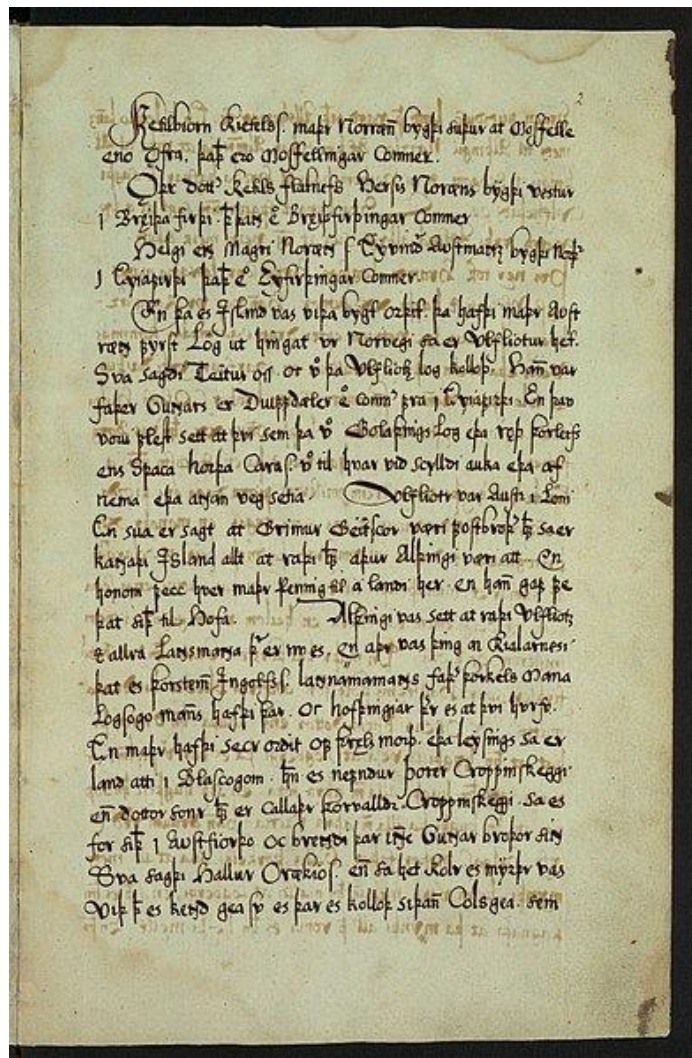 2
Ketilbiorn Kietels s. maþr Norrœn̄ bygþi suþur at Mosfelle
eno Øfra. þaþ̄ ero Mosfellingar Comner.
Oþr dott᷎ Ketils flatnefs Hersis Norœns bygþi vestur
i Breiþa firþi. þ̄ þaþ̄ e᷎o Breiþfirþingar Comner
Helgi ens Magri Norœns s Eyvind᷎ Austmanz bygþi Norþ᷎
i Eyiafirþi þaþ̄ e᷎o Eyfirþingar Comner.
En þa es Island vas viþa bygt orþit. þa hafþi maþr Aust
rœns fyrst Lög ut hingat vr Norvegi sa er Ulfliotur het.
Sva sagdi Teitur oss. oc v᷎o þa Ulfliotz log kolloþ. Han̄ var
faþer Gunnars er Diupdœler e᷎o Comn᷎ fra i Eyiafirþi. En þau
voru flest sett at þvi sem þa v᷎o Golaþings Log eþa reþ þorleifs
ens Spaca Horþa Cara s. v᷎o til hvar vid scylldi auka eþa af
nema eþa annan veg setia. Ulfliotr var Austr i Loni
En sua er sagt at Grimur Geitscor væri fostbroþ᷎ h̄s sa er
kannaþi Island allt at raþi h̄s aþur Alþingi væri att. En
honom fecc hver maþr Penning til a landi her. en han̄ gaf fe
þat siþ̄ til Hofa. Alþingi vas sett at raþi Ulfliotz
& allra Lannsmanna þ᷎ar er nu es. En aþr vas þing a Kialarnesi
þat es þorstein̄ Ingolfs s. landnamamanns faþ᷎ þorkels Mana
Logsogo man̄s, hafþi þar. Oc hofþingiar þ᷎eir es at þvi hurfu.
En maþr hafþi secr ordit of þręls morþ. eþa leysings sa er
land atti i Blascogom. h̄n es nefndur þorer Croppinskeggi
en̄ dottor sonr h̄s er callaþr þorvalldr Croppinskeggi. sa es
for siþ̄ i Austfiorþo oc brenndi þar in̄e Gunnar broþor sinn
Sva sagþi Hallur Orœkios s. en̄ sa het Kolr es myrþr vas
Viþ þ̄ es kennd gea sv es þar es kolloþ siþan̄ Colsgea. sem